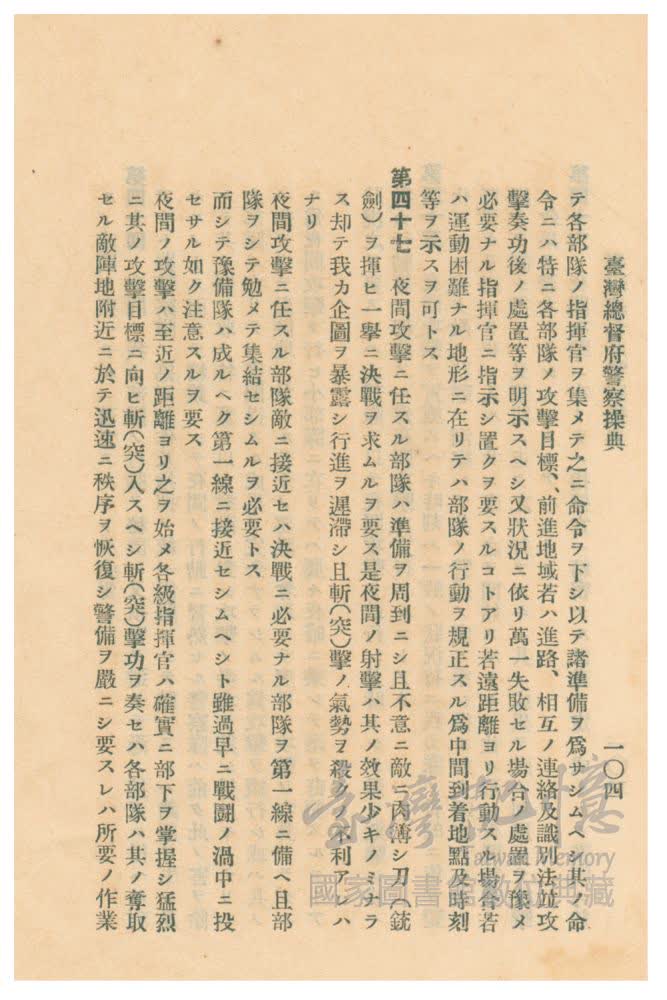 臺灣總督府警察操典
一〇四
テ各部隊ノ指揮官ヲ集メテ之ニ命令ヲ下シ以テ諸準備ヲ爲サシムヘシ其ノ命
令ニハ特ニ各部隊ノ攻擊目標、前進地域若ハ進路、相互ノ連絡及識別法竝攻
擊奏功後ノ處置等ヲ明示スヘシ又狀況ニ依リ萬一失敗セル場合ノ處置ヲ豫メ
必要ナル指揮官ニ指示シ置クヲ要スルコトアリ若遠距離ヨリ行動スル場合若
ハ運動困難ナル地形ニ在リテハ部隊ノ行動ヲ規正スル爲中間到着地點及時刻
等ヲ示スヲ可トス
第四十七　夜間攻擊ニ任スル部隊ハ準備ヲ周到ニシ且不意ニ敵ニ肉薄シ刀(銃
劍)ヲ揮ヒ一擧ニ決戰ヲ求ムルヲ要ス是夜間ノ射擊ハ其ノ效果少キノミナラ
ス却テ我カ企圖ヲ暴露シ行進ヲ遲滯シ且斬(突)擊ノ氣勢ヲ殺ク不利アレハ
ナリ
夜間攻擊ニ任スル部隊敵ニ接近セハ決戰ニ必要ナル部隊ヲ第一線ニ備ヘ且部
隊ヲシテ勉メテ集結セシムルヲ必要トス
而シテ豫備隊ハ成ルヘク第一線ニ接近セシムヘシト雖過早ニ戰鬪ノ渦中ニ投
セサル如ク注意スルヲ要ス
夜間ノ攻擊ハ至近ノ距離ヨリ之ヲ始メ各級指揮官ハ確實ニ部下ヲ掌握シ猛烈
ニ其ノ攻擊目標ニ向ヒ斬(突)入スヘシ斬(突)擊功ヲ奏セハ各部隊ハ其ノ奪取
セル敵陣地附近ニ於テ迅速ニ秩序ヲ恢復シ警備ヲ嚴ニシ要スレハ所要ノ作業
臺灣記憶
Taiwan Memory
國家圖書館數位典藏